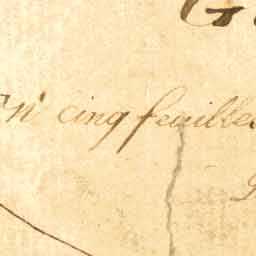 G
En cinq feuilles